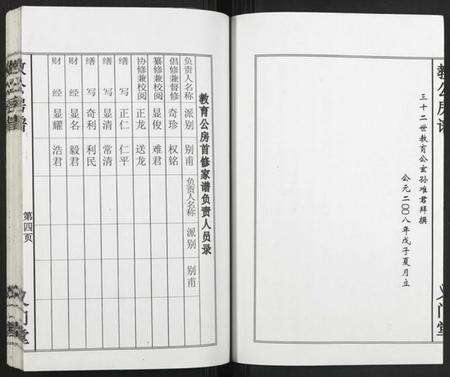 教公房谱
三十二世教育公玄孙难君拜撰
公元二〇〇八年戊子夏月立
义门堂
教育公房首修家谱负责人员录
负责人名称 派别 别甫 负责人名称 派别 别甫
倡修兼督修 奇珍 权铭
纂修兼校阅 显俊 难君
协修兼校阅 正龙 送龙
缮写 正仁 仁平
缮写 显清 常清
缮写 奇利 利民
财经 显名 毅君
财经 显耀 浩君
教公房谱
第四页
义门堂